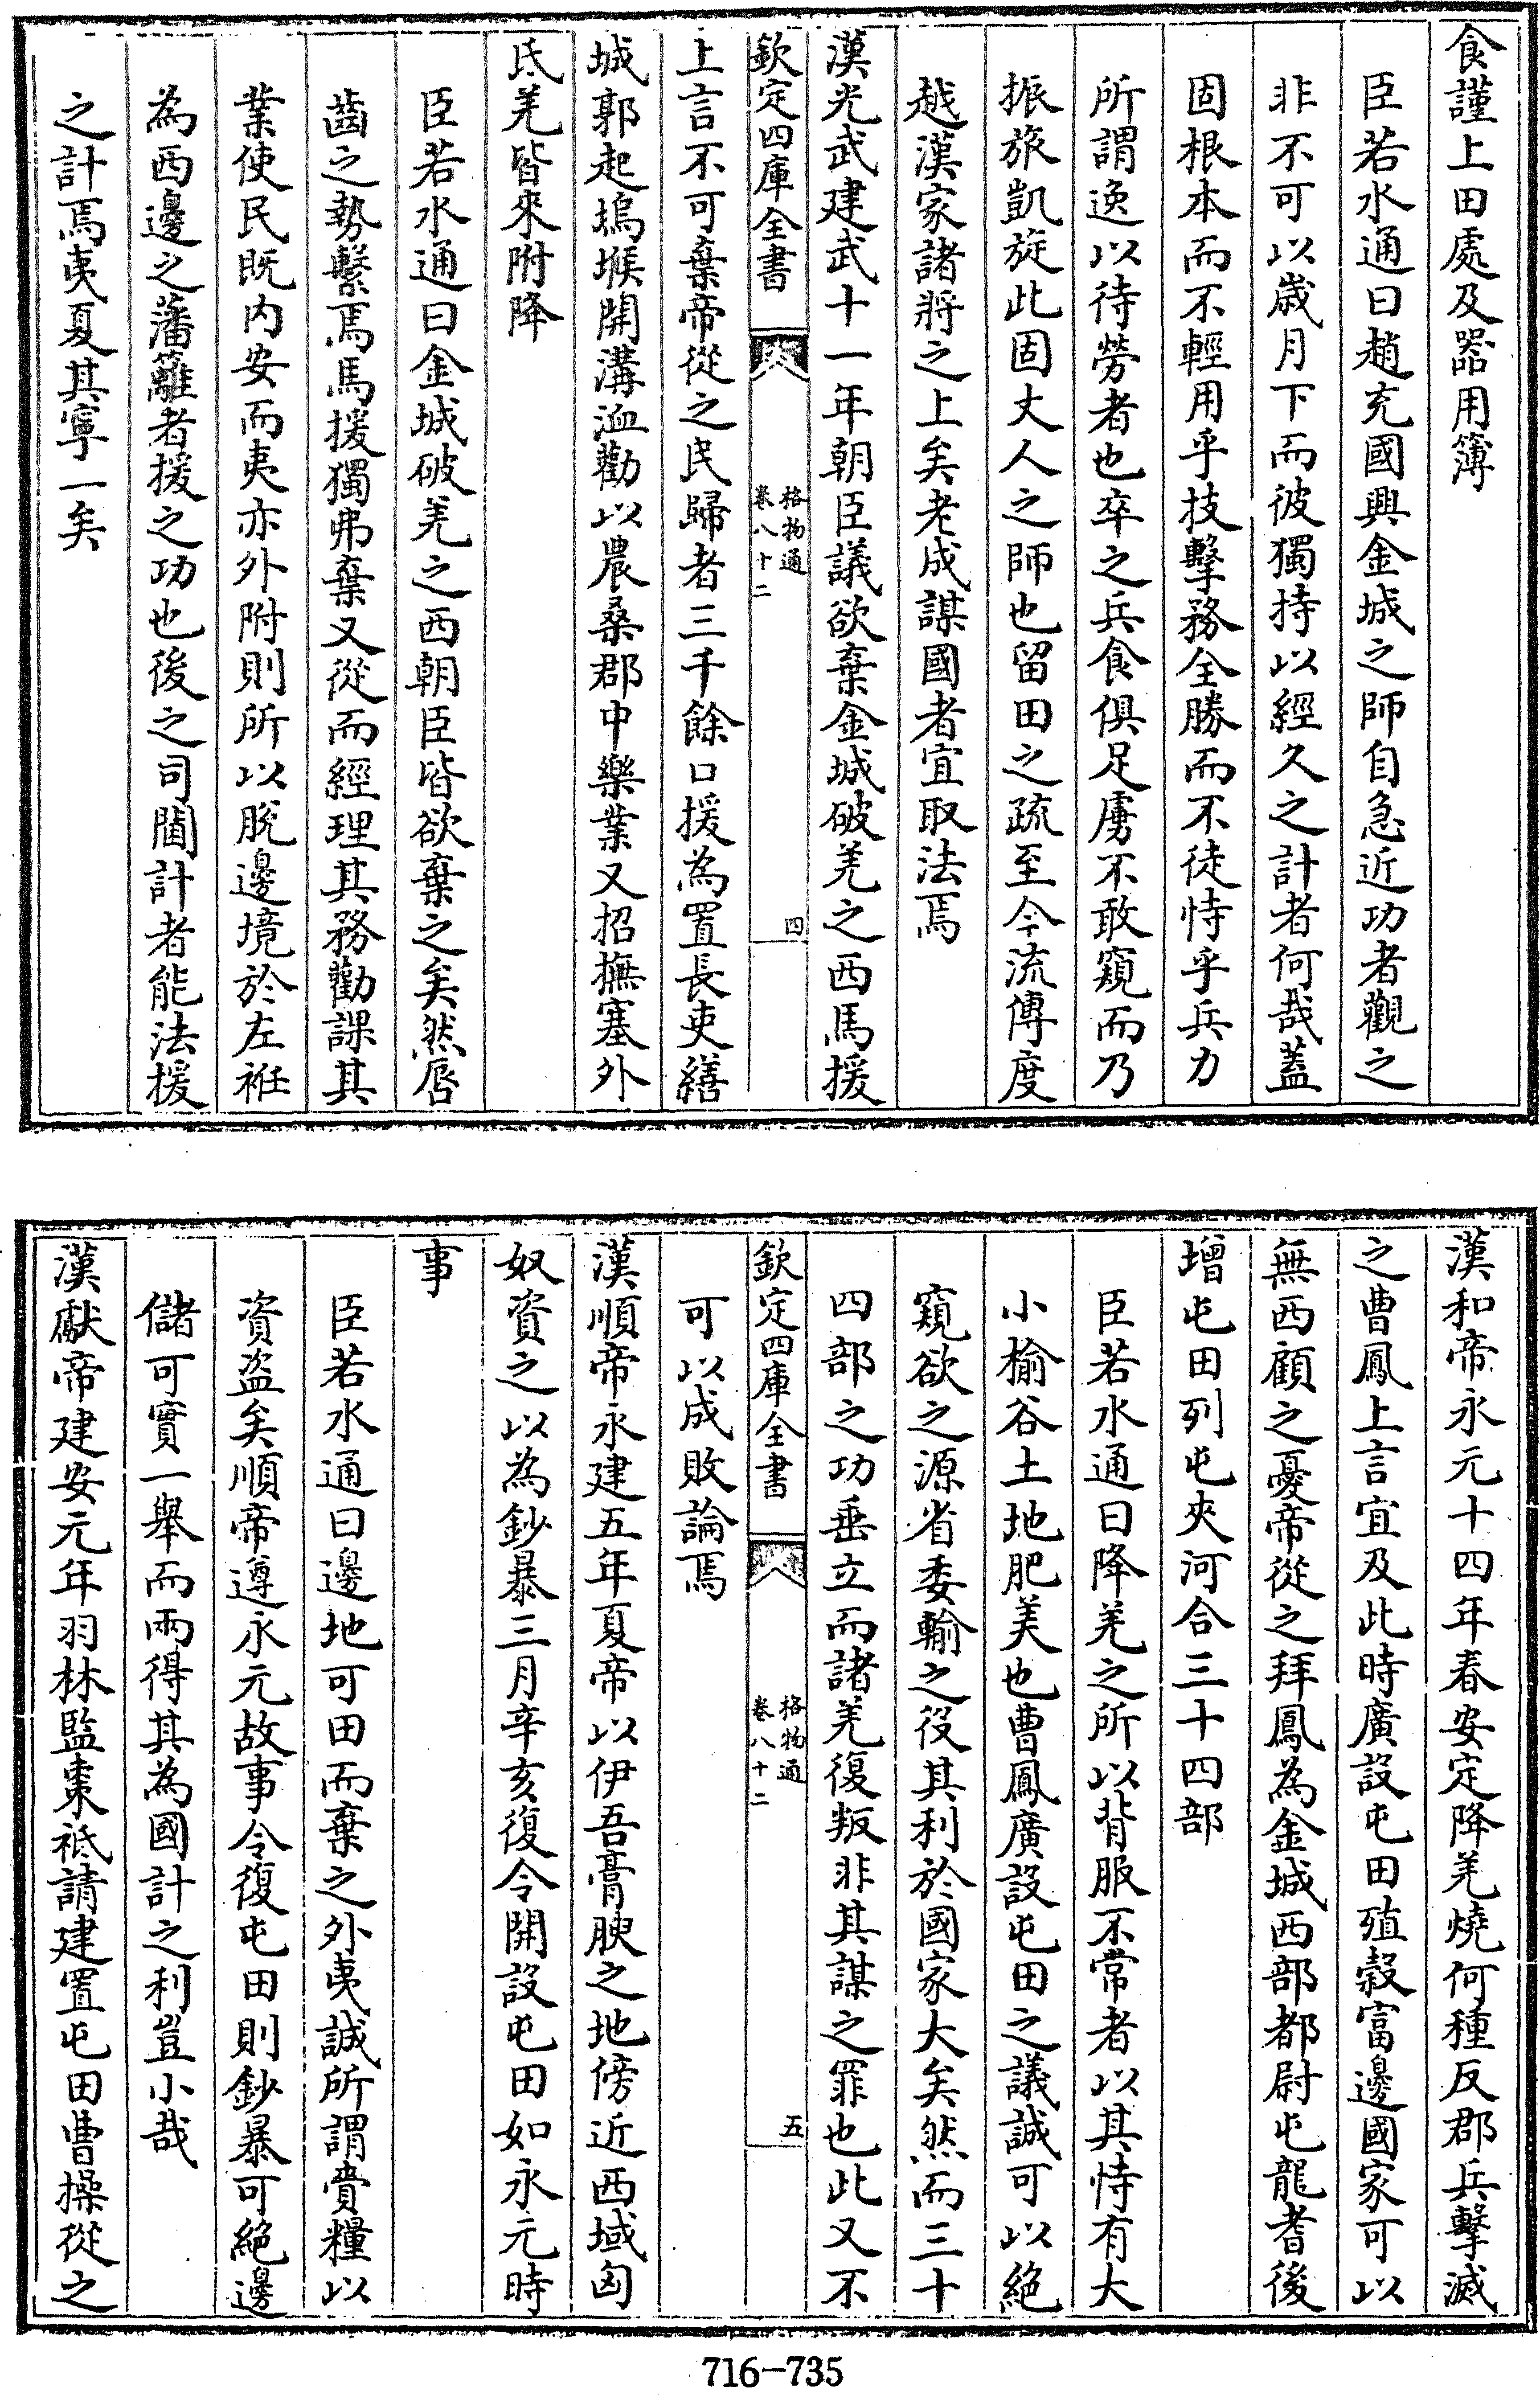 食謹上田處及器用簿
臣若水通曰趙充國興金城之師自急近功者觀之
非不可以歳月下而彼獨持以經久之計者何哉蓋
固根本而不輕用乎技擊務全勝而不徒恃乎兵力
所謂逸以待勞者也卒之兵食俱足虜不敢窺而乃
振旅凱旋此固丈人之師也留田之疏至今流傳度
越漢家諸將之上矣老成謀國者宜取法焉
漢光武建武十一年朝臣議欲棄金城破羌之西馬援
欽定四庫全書
格物通
卷八十二
四
上言不可棄帝從之民歸者三千餘口援為置長吏繕
城郭起塢堠開溝洫勸以農桑郡中樂業又招撫塞外
氐羌皆來附降
臣若水通曰金城破羌之西朝臣皆欲棄之矣然唇
齒之勢繫焉馬援獨弗棄又從而經理其務勸課其
業使民既内安而夷亦外附則所以脫邊境於左袵
為西邊之藩籬者援之功也後之司閫計者能法援
之計焉夷夏其寧一矣
漢和帝永元十四年春安定降羌燒何種反郡兵擊滅
之曹鳳上言宜及此時廣設屯田殖穀富邊國家可以
無西顧之憂帝從之拜鳳為金城西部都尉屯龍耆後
增屯田列屯夾河合三十四部
臣若水通曰降羌之所以背服不常者以其恃有大
小榆谷土地肥美也曹鳳廣設屯田之議誠可以絕
窺欲之源省委輸之役其利於國家大矣然而三十
四部之功垂立而諸羌復叛非其謀之罪也此又不
欽定四庫全書
格物通
卷八十二
五
可以成敗論焉
漢順帝永建五年夏帝以伊吾膏腴之地傍近西域匈
奴資之以為鈔暴三月辛亥復令開設屯田如永元時
事
臣若水通曰邊地可田而棄之外夷誠所謂賫糧以
資盗矣順帝遵永元故事令復屯田則鈔暴可絕邊
儲可實一舉而兩得其為國計之利豈小哉
漢獻帝建安元年羽林監棗祗請建置屯田曹操從之
716-735